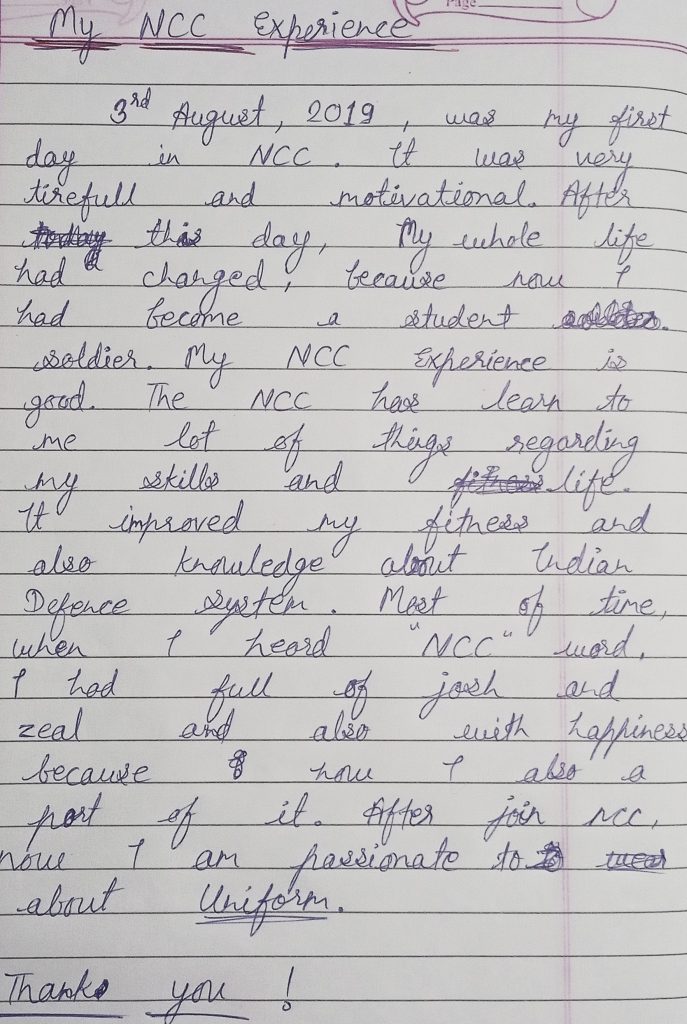 Page
My NCC Experience
3rd August, 2019, was my first
day in NCC. It was very
tirefull and motivational. After
this day, My whole life
had changed, because now I
had become a student
soldier. My NCC Experience is
good. The NCC has learn to
me lot of things regarding
my skills and life.
It improved my fitness and
also knowledge about Indian
Defence system. Most of time,
when I heard "NCC" word,
I had full of josh and
zeal and also with happiness
because now I also a
part of it. After join NCC,
now I am passionate to
about Uniform.
Thank you !